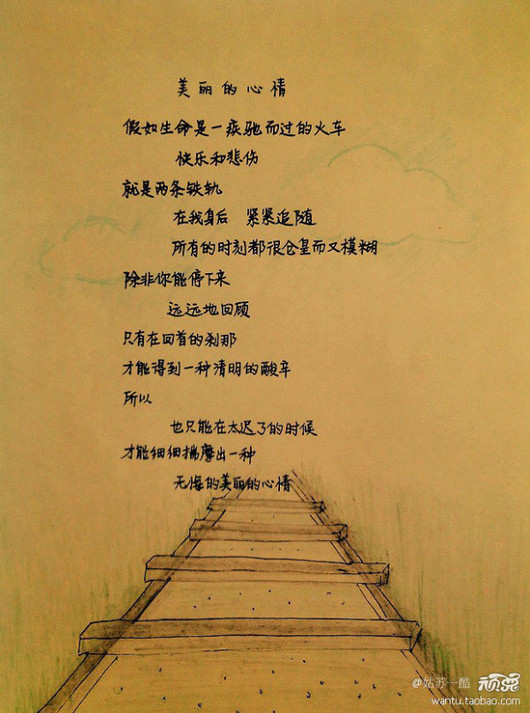 美丽的心情
假如生命是一疾驰而过的火车
快乐和悲伤
就是两条铁轨
在我身后 紧紧追随
所有的时刻都很仓皇而又模糊
除非你能停下来
远远地回顾
只有在回首的刹那
才能得到一种清明的酸辛
所以
也只能在太迟了的时候
才能细细揣摩出一种
无悔的美丽的心情
@姑苏一酷 顽兔
wantu.taobao.com